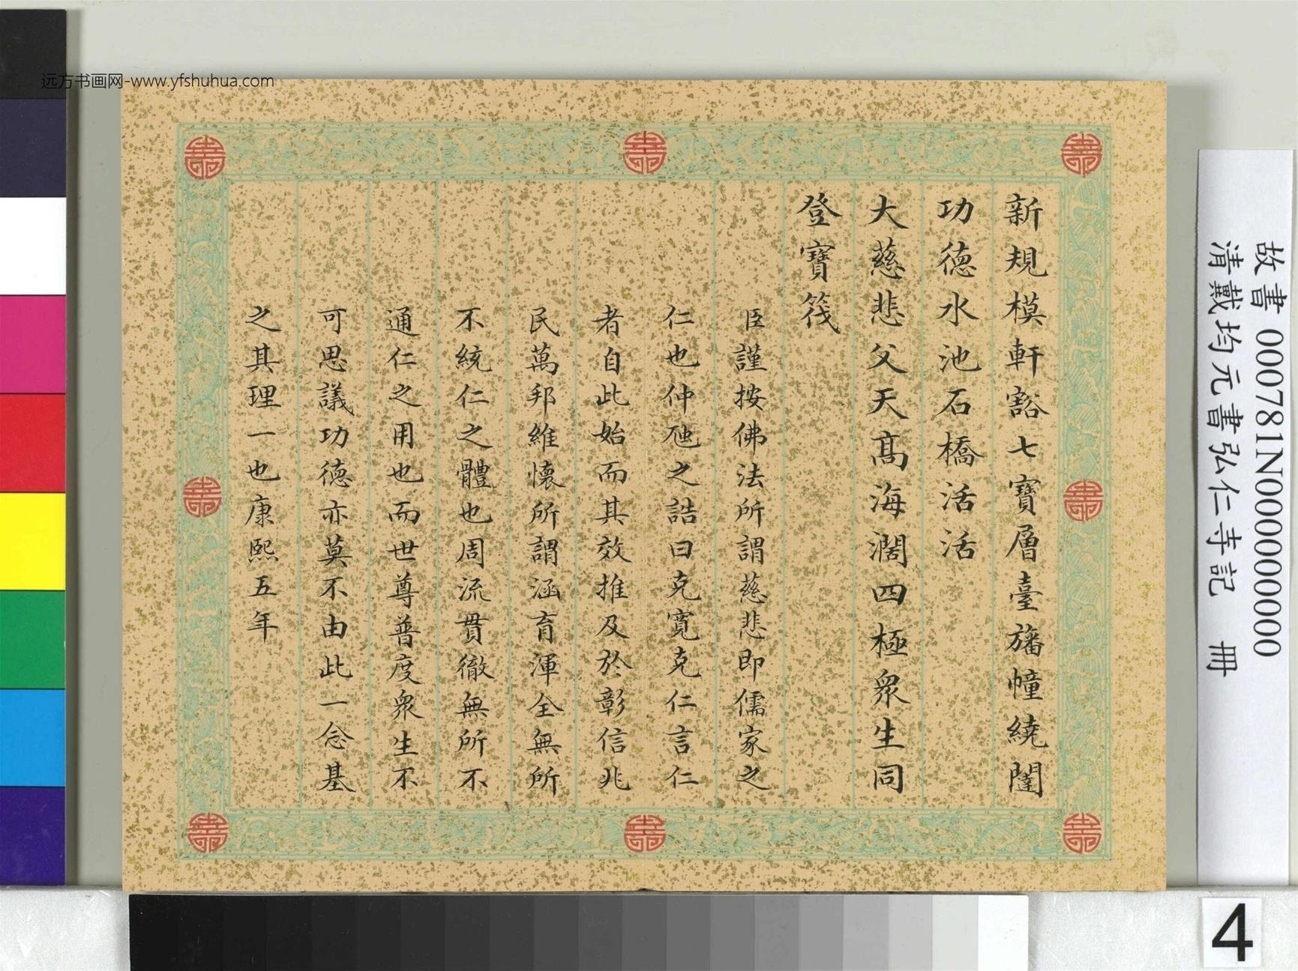 远方书画网-www.yfshuhua.com
新規模軒豁七寶層臺旛幢繞闥
功德水池石橋活活
大慈悲父天高海濶四極衆生同
登寶筏
臣謹按佛法所謂慈悲即儒家之
仁也仲虺之誥曰克寬克仁言仁
者自此始而其效推及於彰信兆
民萬邦維懷所謂涵育渾全無所
不統仁之體也周流貫徹無所不
通仁之用也而世尊普度衆生不
可思議功德亦莫不由此一念基
之其理一也康熙五年
故書 000781N000000000
清戴均元書弘仁寺記 冊
4